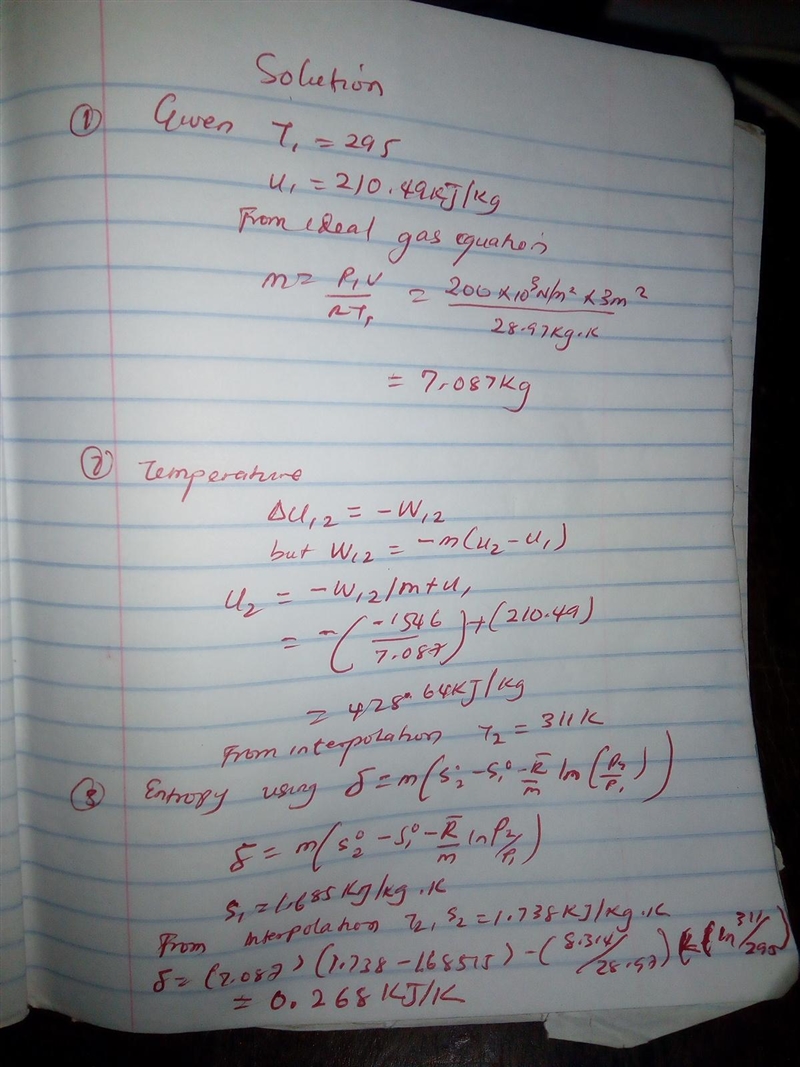 Solution
① Given T₁ = 295
u₁ = 210.49KJ/kg
From ideal gas equation
m = P₁V/RT₁ = 200 x 10³N/m² x 3m²/28.97kg.K
= 7.087kg
② Temperature
ΔU₁₂ = -W₁₂
but W₁₂ = -m(u₂ - u₁)
U₂ = -W₁₂/m + u₁
= -(-1546/7.087) + (210.49)
= 428.64KJ/kg
From interpolation T₂ = 311K
③ Entropy using δ = m(S₂° - S₁° - R̄/m ln(P₂/P₁))
δ = m(S₂° - S₁° - R̄/m ln P₂/P₁)
S₁ = 1.685KJ/kg.K
From interpolation T₂, S₂ = 1.738KJ/kg.K
δ = (7.087)(1.738 - 1.68515) - (8.314/28.97) (ln 311/295)
= 0.268KJ/K